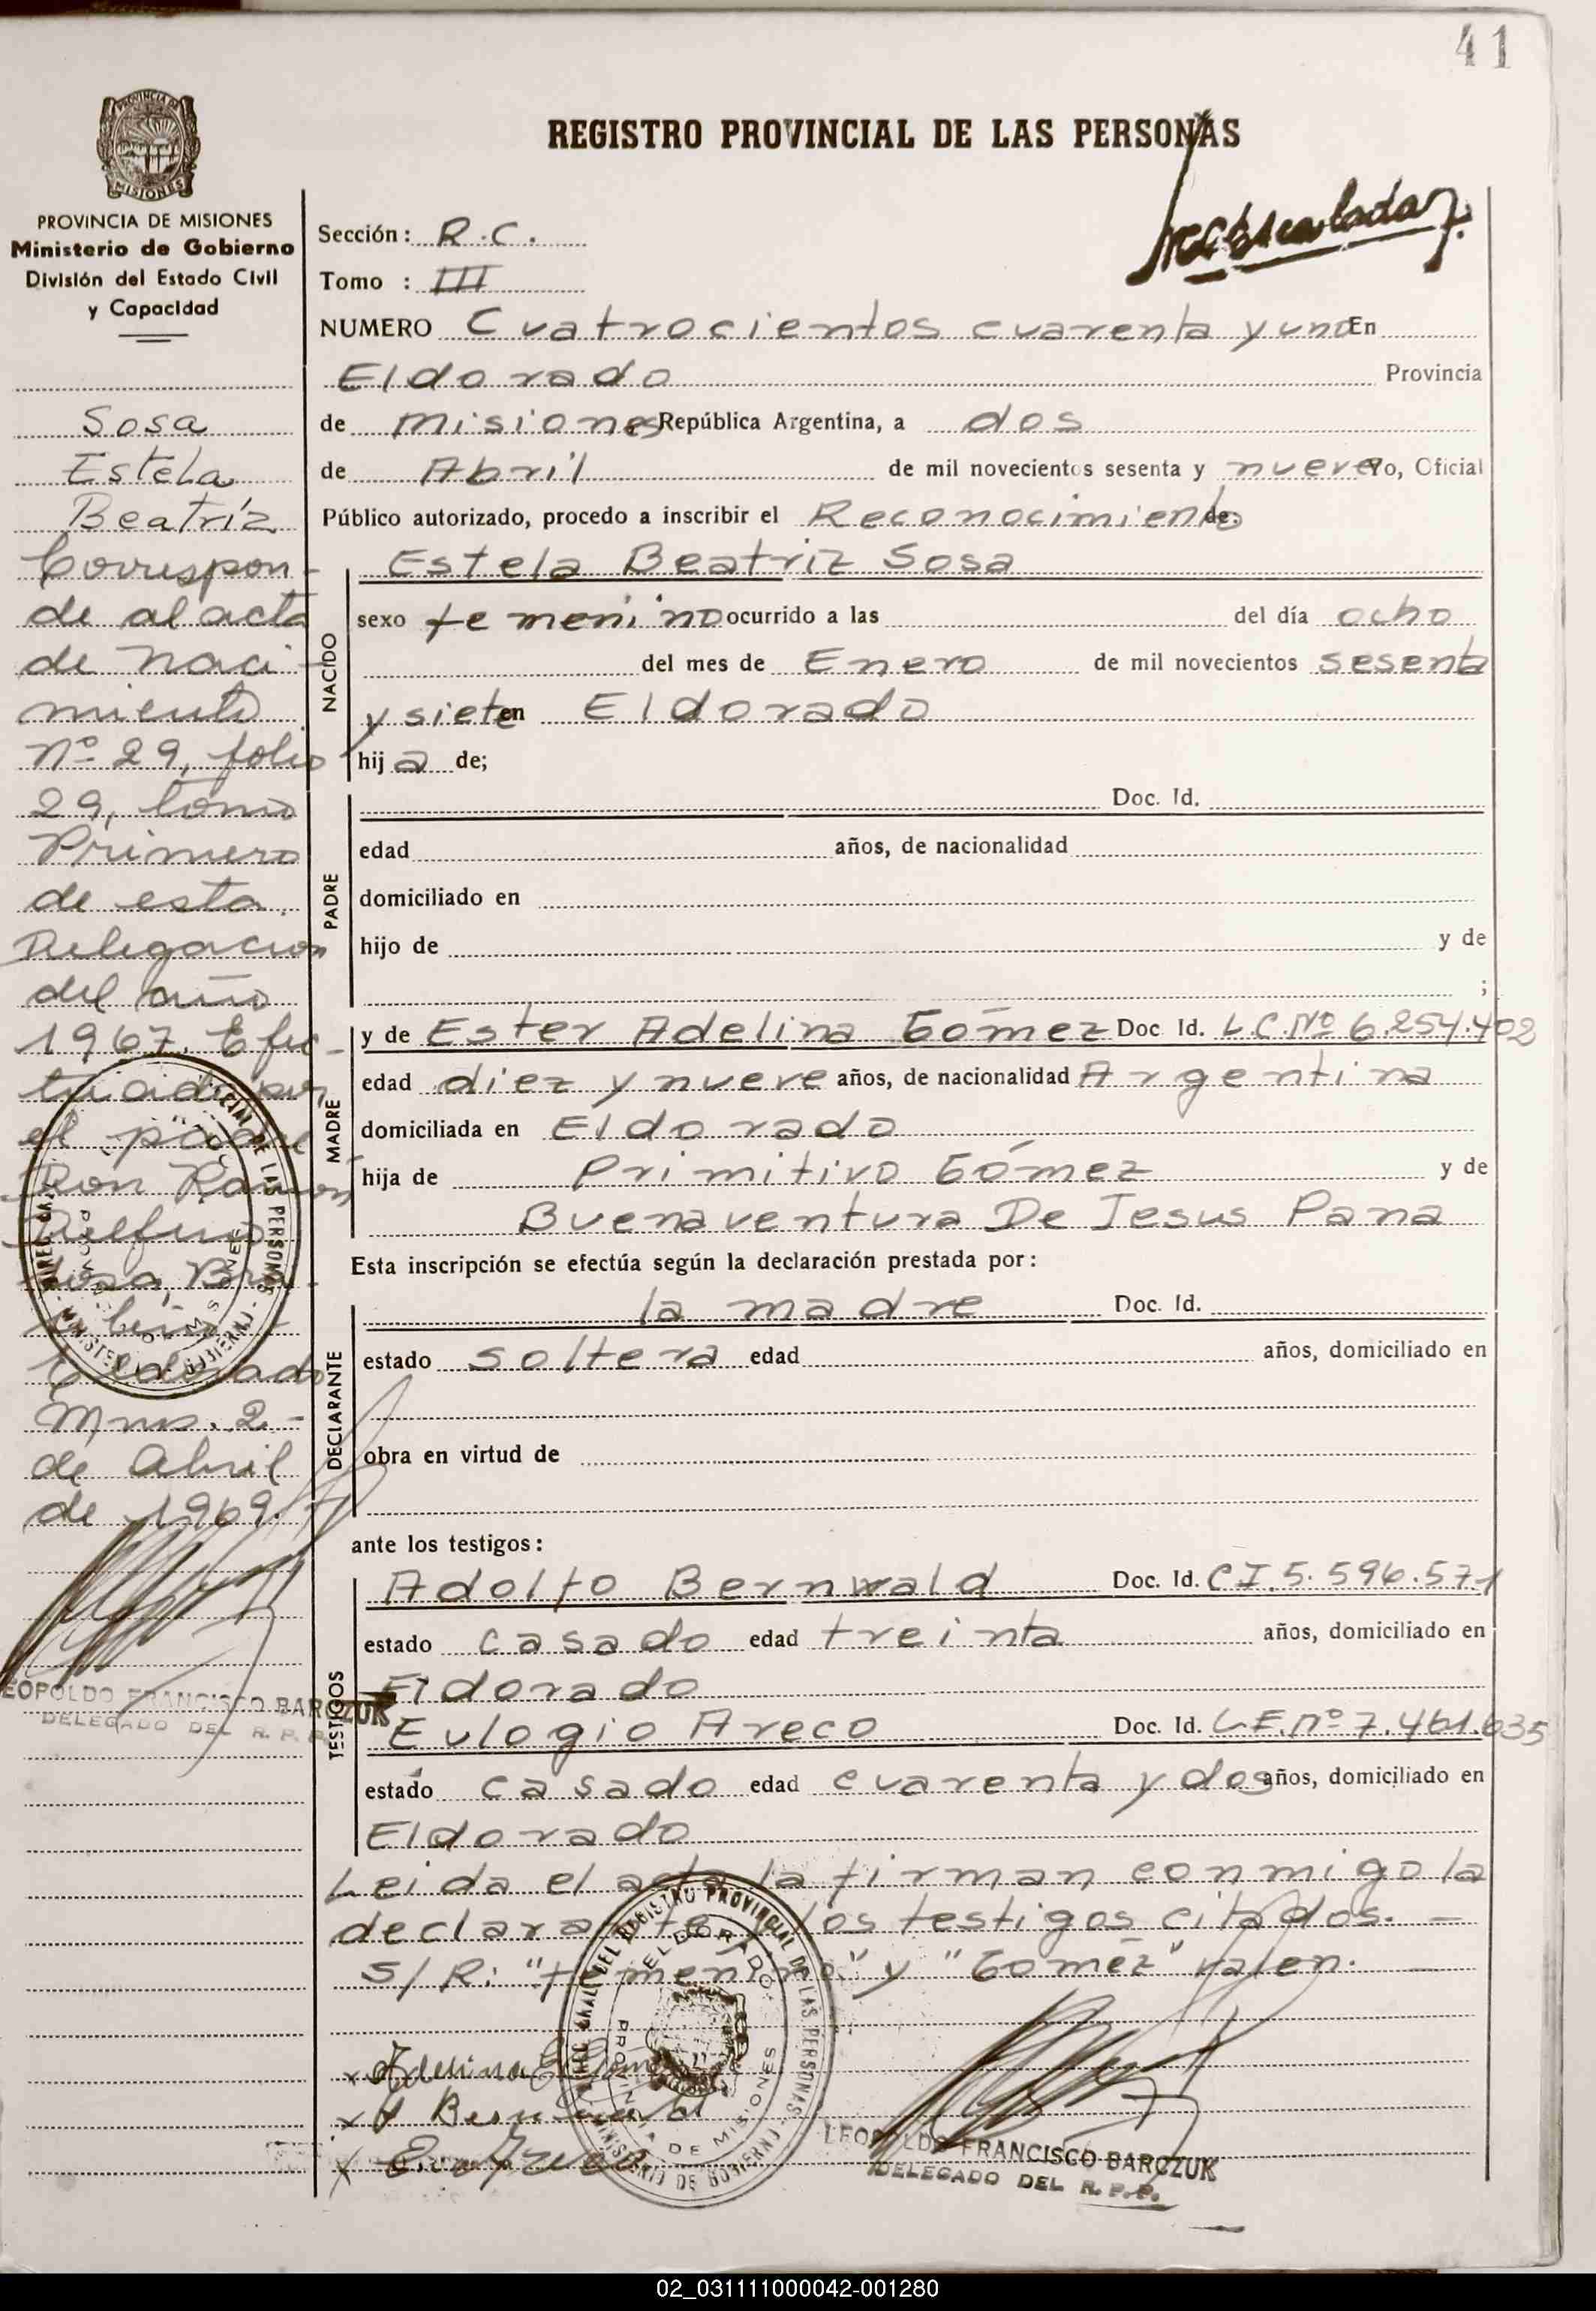 41
REGISTRO PROVINCIAL DE LAS PERSONAS
PROVINCIA DE MISIONES
Ministerio de Gobierno
División del Estado Civil
y Capacidad
Sosa
Estela
Beatríz
Correspon-
de al acta
de naci-
miento
Nº 29, folio
29, tomo
Primero
de esta
Delegacion
del año
1967. Efec-
tuado por
el padre
Don Ramón
Sosa,
Eldorado
Mnes. 2-
de Abril
de 1969.
LEOPOLDO FRANCISCO BARCZUK
DELEGADO DEL R. P. P.
Sección: R.C.
Tomo : III
NUMERO Cuatrocientos cuarenta y uno En
Eldorado Provincia
de Misiones República Argentina, a dos
de Abril de mil novecientos sesenta y nueve Yo, Oficial
Público autorizado, procedo a inscribir el Reconocimiento de:
NACIDO
Estela Beatriz Sosa
sexo femenino ocurrido a las del día ocho
del mes de Enero de mil novecientos sesenta
y siete en Eldorado
hija de;
PADRE
Doc. Id.
edad años, de nacionalidad
domiciliado en
hijo de y de
;
MADRE
y de Ester Adelina Gómez Doc. Id. L.C.Nº 6.254.402
edad diez y nueve años, de nacionalidad Argentina
domiciliada en Eldorado
hija de Primitivo Gómez y de
Buenaventura De Jesus Pana
Esta inscripción se efectúa según la declaración prestada por:
DECLARANTE
la madre Doc. Id.
estado soltera edad años, domiciliado en
obra en virtud de
ante los testigos:
TESTIGOS
Adolfo Bernwald Doc. Id. C I. 5.596.571
estado casado edad treinta años, domiciliado en
Eldorado
Eulogio Areco Doc. Id. L.E.nº 7.461.635
estado casado edad cuarenta y dos años, domiciliado en
Eldorado
Leida el acta la firman conmigo la
declarante y los testigos citados. —
S/R: "femenino" y "Goméz" valen. —
x Adelina E. Gomez
DIREC. GRAL. DEL REGISTRO PROVINCIAL DE LAS PERSONAS
MINISTERIO DE GOBIERNO
ELDORADO
PROVINCIA DE MISIONES
LEOPOLDO FRANCISCO BARCZUK
DELEGADO DEL R. P. P.
02_031111000042-001280